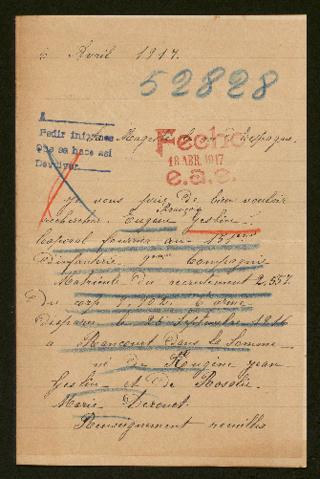 6 Avril 1917.
52828
A
Pedir informes
Que se hace asi
Devolver
Sa Majesté le roi d'Espagne.
Fecho
18 ABR. 1917
e.a.c.
Je vous prie de bien vouloir
rechercher Eugène François Gestin
Caporal fourrier au 15 ème
D'infanterie Compagnie
Matricule Du recrutement 2,557.
Du corp 6 ème
Disparu le 25 Septembre 1916
a Rancourt dans la Somme
né de Eugène jean
Gestin et de Rosalie
Marie
Renseignement